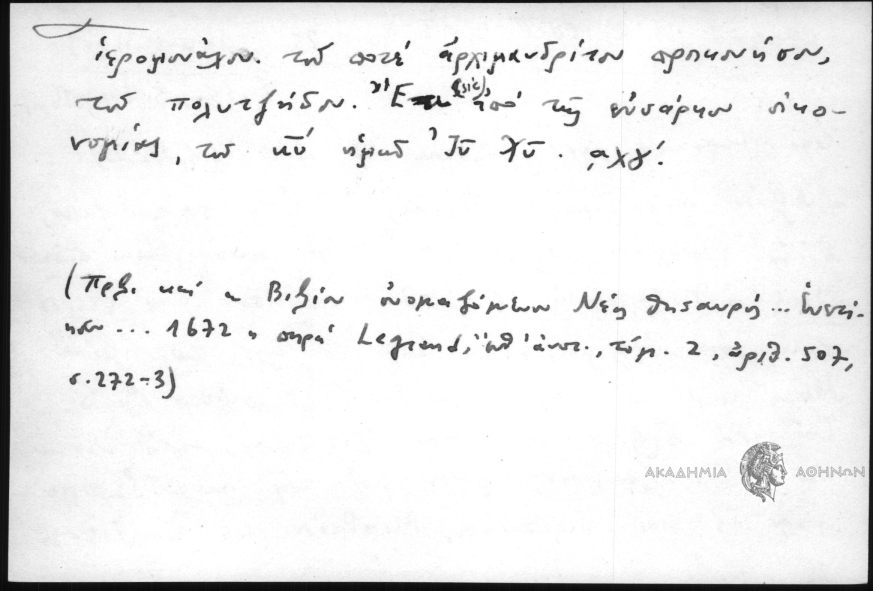 ἱερομονάχου. τοῦ ποτέ ἀρχιμανδρίτου προικονήσου,
τοῦ πολυτζήδου. (sic), ἀπό τῆς ἐνσάρκου οἰκο-
νομίας, τοῦ κ̅υ̅ ἡμῶν Ἰ̅υ̅ Χ̅υ̅. ͵αχγ΄.
(Πρβ. καί « Βιβλίον ὀνομαζόμενον Νέος θησαυρός... Ἑνετί-
ησιν ... 1672 » παρά Legrand, ἔνθ' ἀνωτ., τόμ. 2, ἀριθ. 507,
σ. 272-3)
ΑΚΑΔΗΜΙΑ ΑΘΗΝΩΝ